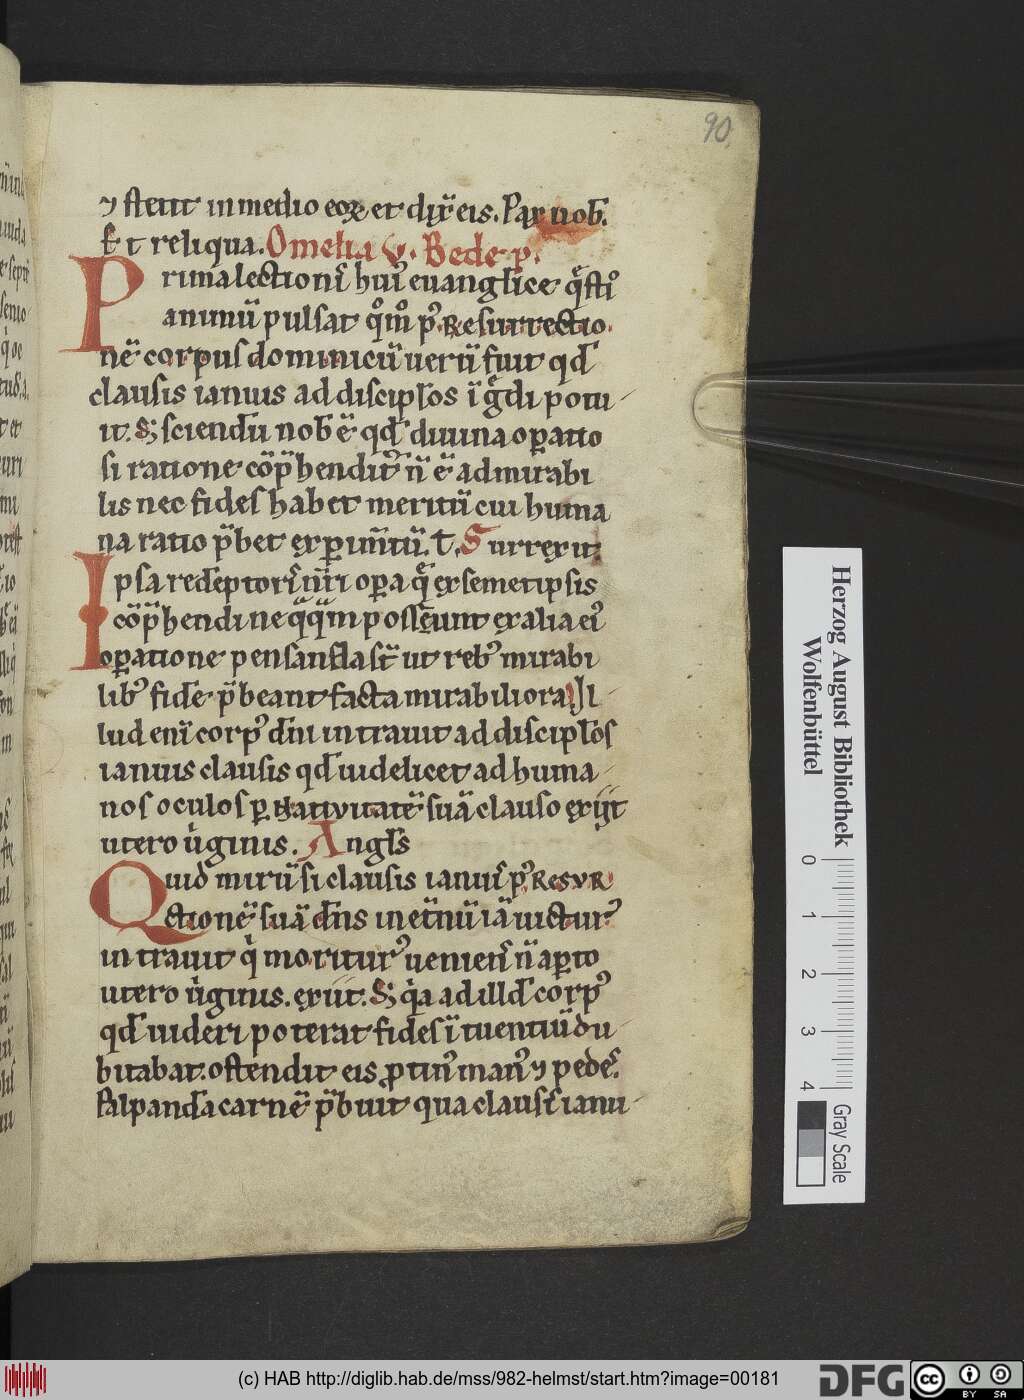 90
⁊ stetit in medio eoꝝ et dix̄ eis. Pax uob̄.
Et reliqua. Omelia v. Bede p̄.
Prima lectionꝭ huiꝰ euanglice q̄stio
animū pulsat qͦmͦ pꝰ Resurrectio
nē corpus dominicū uerū fuit qd̄
clausis ianuis ad discipłos īgͬdi potu
it. Sꝫ sciendū nob̄ ē qd̄ diuina oꝑatio
si ratione cōp̄hendit᷑ n̄ ē admirabi
lis nec fides habet meritū cui huma
na ratio p̄bet exꝑim̄tū. t. Surrexit
Ipsa redēptorꝭ nr̄i oꝑa q̄ ex semetipsis
cōp̄hendi nequaq̄m poss̄unt ex alia eiꝰ
oꝑatione pensanda st̄ ut rebꝰ mirabi
libꝰ fidē p̄beant facta mirabiliora. Il
lud eni corpꝰ dn̄i intrauit ad discipłos
ianuis clausis qd̄ uidelicet ad huma
nos oculos ꝑ natiuitatē suā clauso exiit
utero uͥginis. Angłs
Quid mirū si clausis ianuis pꝰ Resur
ctionē suā dn̄s inet̄nū iā uicturꝰ
intrauit qͥ moriturꝰ ueniens n̄ aꝑto
utero uͥginis. exiit. Sꝫ qͥa ad illd̄ corpꝰ
qd̄ uideri poterat fides ītuentiū du
bitabat. ostendit eis ꝓtinꝰ manꝰ ⁊ pedes.
Palpandā carnē p̄buit qua clausis ianu
Herzog August Bibliothek
Wolfenbüttel
0 1 2 3 4
Gray Scale
(c) HAB http://diglib.hab.de/mss/982-helmst/start.htm?image=00181
DFG
cc BY SA